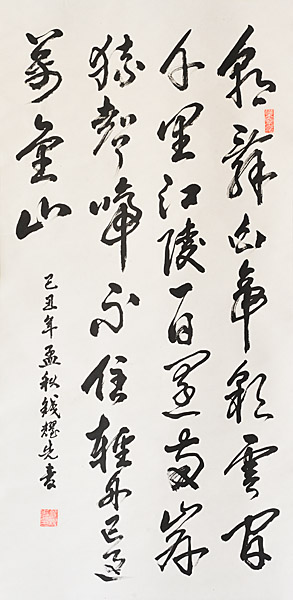 朝辭白帝彩雲間
千里江陵一日還兩岸
猿聲啼不住輕舟已過
萬重山
己丑年孟秋錢耀先書